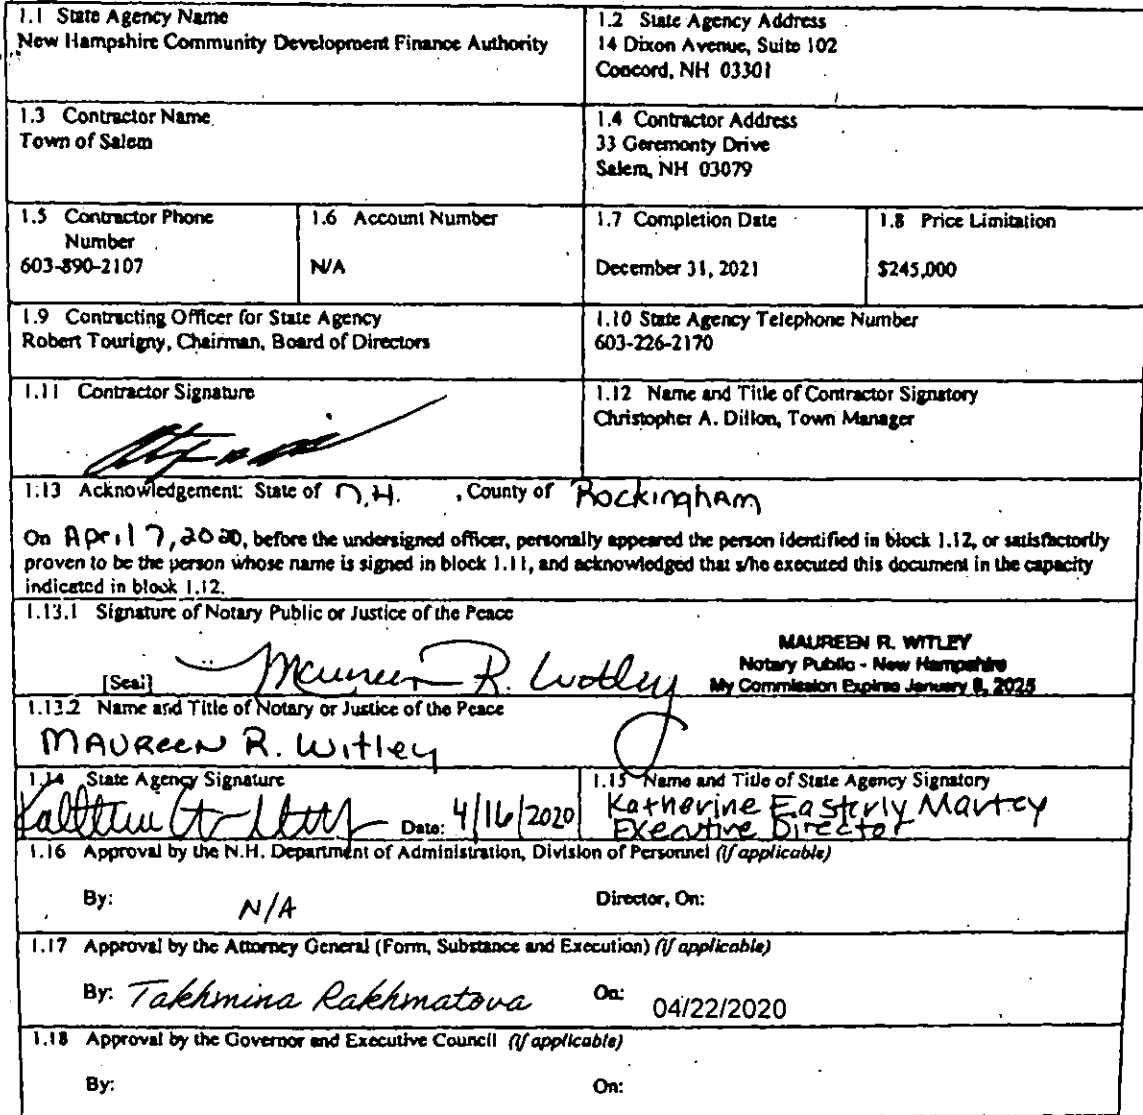 1.1 State Agency Name
New Hampshire Community Development Finance Authority
1.2 State Agency Address
14 Dixon Avenue, Suite 102
Concord, NH 03301
1.3 Contractor Name
Town of Salem
1.4 Contractor Address
33 Geremonty Drive
Salem, NH 03079
1.5 Contractor Phone
Number
603-890-2107
1.6 Account Number
N/A
1.7 Completion Date
December 31, 2021
1.8 Price Limitation
$245,000
1.9 Contracting Officer for State Agency
Robert Tourigny, Chairman, Board of Directors
1.10 State Agency Telephone Number
603-226-2170
1.11 Contractor Signature
1.12 Name and Title of Contractor Signatory
Christopher A. Dillon, Town Manager
1.13 Acknowledgement: State of N.H. , County of Rockingham
On April 7, 2020, before the undersigned officer, personally appeared the person identified in block 1.12, or satisfactorily
proven to be the person whose name is signed in block 1.11, and acknowledged that s/he executed this document in the capacity
indicated in block 1.12.
1.13.1 Signature of Notary Public or Justice of the Peace
[Seal] Maureen R. Witley
MAUREEN R. WITLEY
Notary Public - New Hampshire
My Commission Expires January 8, 2025
1.13.2 Name and Title of Notary or Justice of the Peace
MAUREEN R. Witley
1.14 State Agency Signature
Date: 4/16/2020
1.15 Name and Title of State Agency Signatory
Katherine Easterly Martey
Executive Director
1.16 Approval by the N.H. Department of Administration, Division of Personnel (if applicable)
By: N/A Director, On:
1.17 Approval by the Attorney General (Form, Substance and Execution) (if applicable)
By: Takhmina Rakhmatova On: 04/22/2020
1.18 Approval by the Governor and Executive Council (if applicable)
By: On: